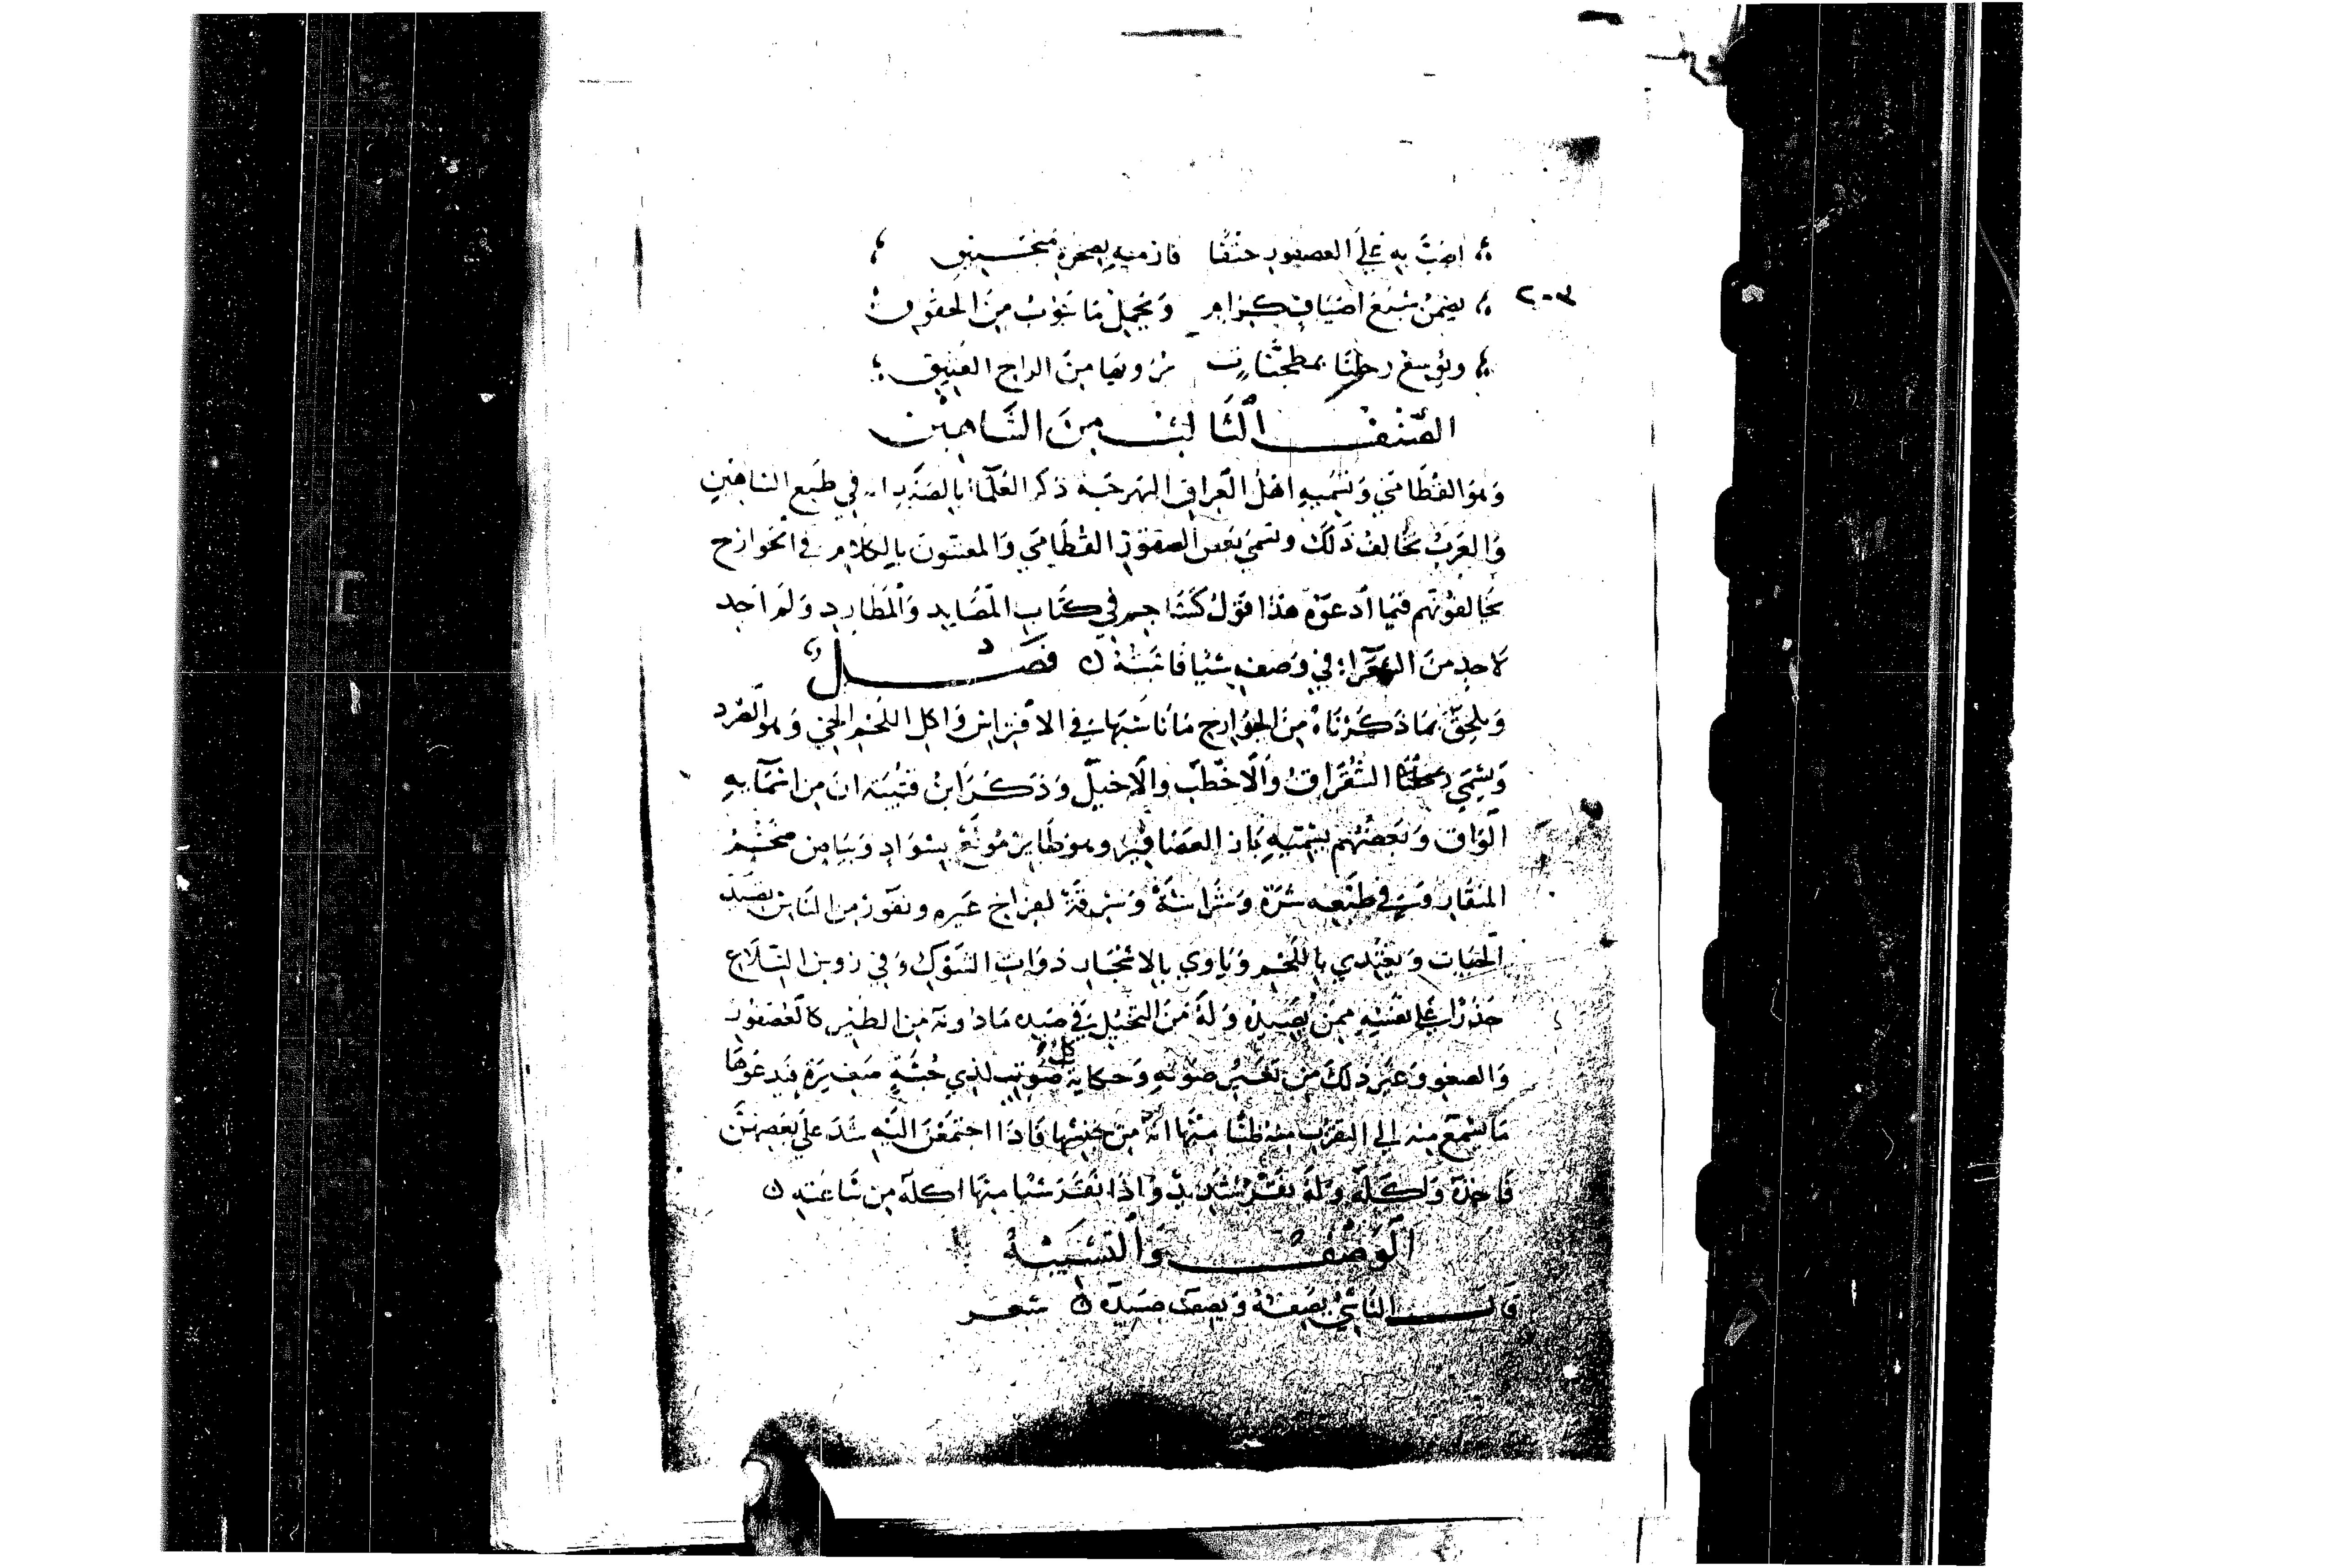 اصب به على العصفور حتفا فارميه بصخرة منجنيق
٢٠٣
يضمن شبع اضياف كرام ويحمل ما ينوب من الحقوق
ويوسع رحلنا بمطجنات نرويها من الراح العتيق
الصِّنْف الثَّالِث مِنَ الشَّاهِين
وهو القطامي وتسميه اهل العراق البهرجة ذكر العلماء بالصيد انه في طبع الشاهين
والعرب تخالف ذلك وتسمي بعض الصقور القطامي والمعتنون بالكلام في الجوارح
يخالفونهم فيما ادعوه هذا قول كشاجم في كتاب المصايد والمطارد ولم اجد
لاحد من الشعراء في وصفه شيا فاثبته فصل
ويلحق بما ذكرناه من الجوارح ما ناسبها في الافتراس واكل اللحم الحي وهو الصرد
ويسمي الشقراق والاخطب والاخيل وذكر ابن قتيبة ان من اسمآيه
الواق وبعضهم يسميه باز العصافير وهو طاير مولع بسواد وبياض ضخم
المنقار وفي طبعه شره وشراسة وسرقة لفراخ غيره ونفور من الناس يصيد
الحيات ويغتدي باللحم وياوي بالاشجار ذوات الشوك وفي روس التلاع
حذرا على نفسه ممن يصيده وله من التحيل في صيده ما دونه من الطير كالعصفور
والصعو وغير ذلك من تغيير صوته وحكاية كل صوت لذي جثة صغيرة فيدعوها
ما تسمع منه الي التقرب منه ظنا منها انه من جنسها فاذا اجتمعن اليه شد على بعضهن
فاخذه واكله وله نقر شديد واذا نقر شيا منها اكله من ساعته
الوَصْف وَالتَّشْبِيه
قال الناشي يصفه ويصف صيده شعر